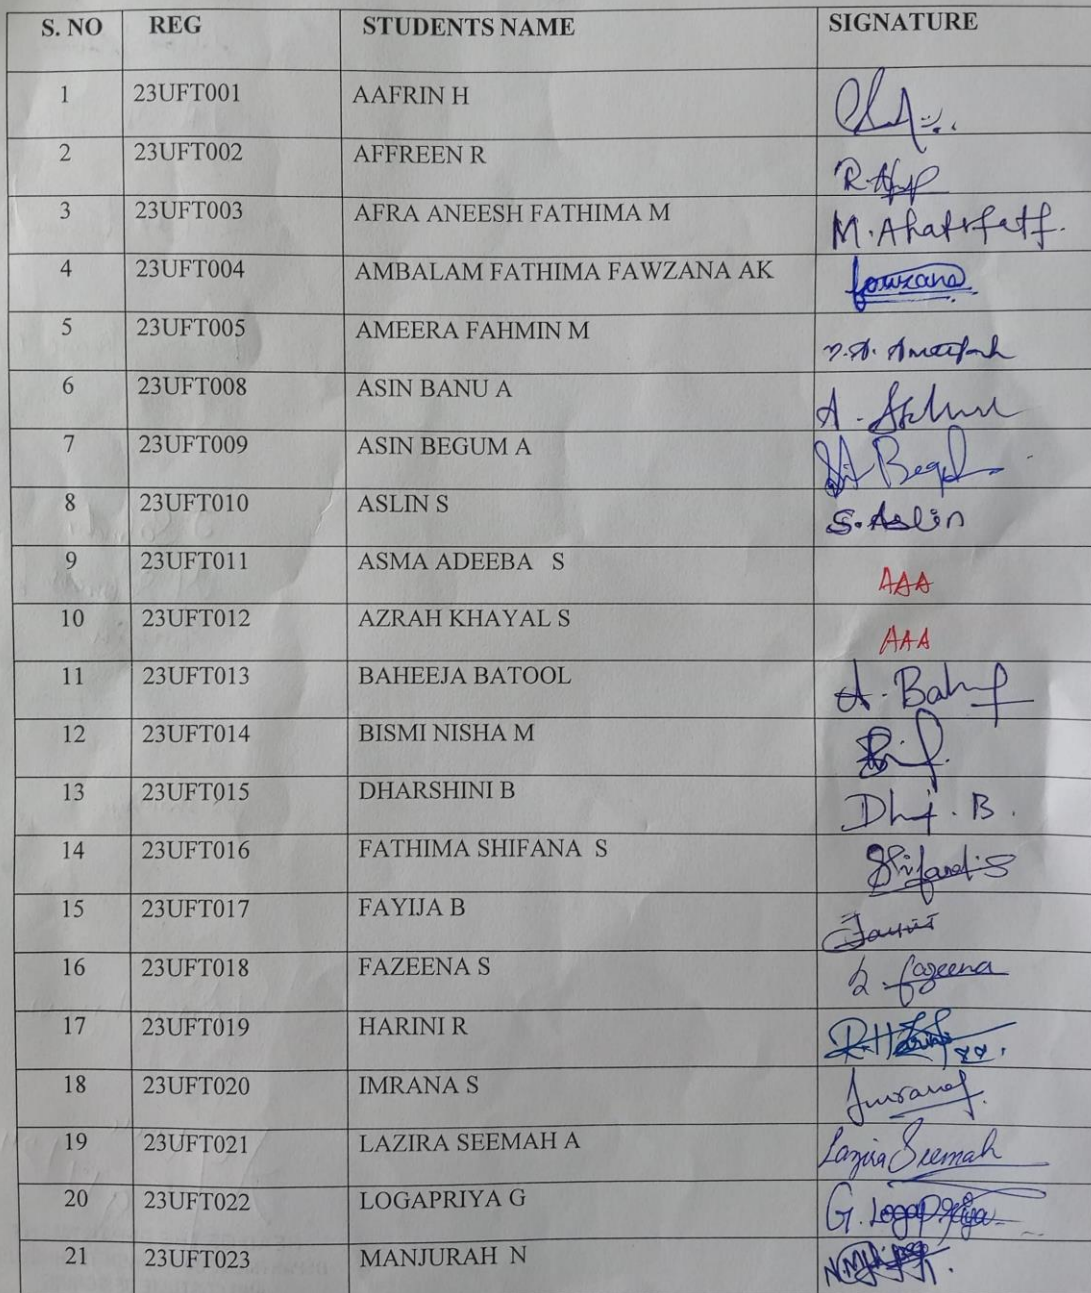 S. NO REG STUDENTS NAME SIGNATURE
1 23UFT001 AAFRIN H
2 23UFT002 AFFREEN R
3 23UFT003 AFRA ANEESH FATHIMA M
4 23UFT004 AMBALAM FATHIMA FAWZANA AK fowzana
5 23UFT005 AMEERA FAHMIN M
6 23UFT008 ASIN BANU A
7 23UFT009 ASIN BEGUM A
8 23UFT010 ASLIN S S. Aslin
9 23UFT011 ASMA ADEEBA S AAA
10 23UFT012 AZRAH KHAYAL S AAA
11 23UFT013 BAHEEJA BATOOL
12 23UFT014 BISMI NISHA M
13 23UFT015 DHARSHINI B
14 23UFT016 FATHIMA SHIFANA S
15 23UFT017 FAYIJA B
16 23UFT018 FAZEENA S S. fazeena
17 23UFT019 HARINI R R. Harini
18 23UFT020 IMRANA S
19 23UFT021 LAZIRA SEEMAH A Lazira Seemah
20 23UFT022 LOGAPRIYA G G. Logapriya
21 23UFT023 MANJURAH N